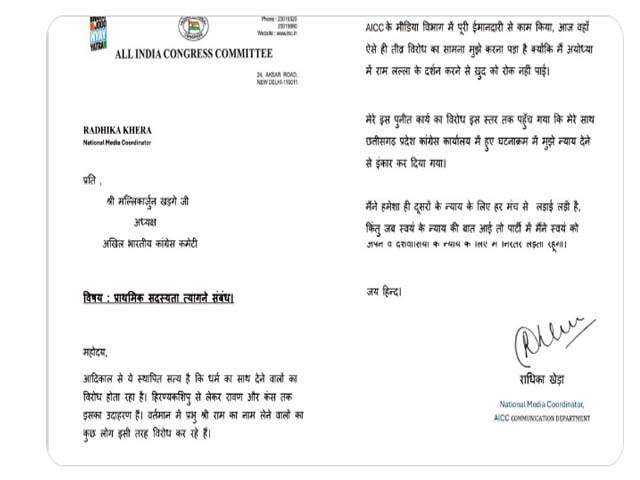 JODO
NYAY
YATRA
Phone : 23019320
23018980
Website : www.inc.in
ALL INDIA CONGRESS COMMITTEE
24, AKBAR ROAD,
NEW DELHI-110011
RADHIKA KHERA
National Media Coordinator
प्रति ,
श्री मल्लिकार्जुन खड़गे जी
अध्यक्ष
अखिल भारतीय कांग्रेस कमेटी
विषय : प्राथमिक सदस्यता त्यागने संबंध।
महोदय,
आदिकाल से ये स्थापित सत्य है कि धर्म का साथ देने वालों का
विरोध होता रहा है। हिरण्यकशिपु से लेकर रावण और कंस तक
इसका उदाहरण हैं। वर्तमान में प्रभु श्री राम का नाम लेने वालों का
कुछ लोग इसी तरह विरोध कर रहे हैं।
AICC के मीडिया विभाग में पूरी ईमानदारी से काम किया, आज वहाँ
ऐसे ही तीव्र विरोध का सामना मुझे करना पड़ा है क्योंकि मैं अयोध्या
में राम लल्ला के दर्शन करने से ख़ुद को रोक नहीं पाई।
मेरे इस पुनीत कार्य का विरोध इस स्तर तक पहुँच गया कि मेरे साथ
छत्तीसगढ़ प्रदेश कांग्रेस कार्यालय में हुए घटनाक्रम में मुझे न्याय देने
से इंकार कर दिया गया।
मैंने हमेशा ही दूसरों के न्याय के लिए हर मंच से लड़ाई लड़ी है,
किंतु जब स्वयं के न्याय की बात आई तो पार्टी में मैंने स्वयं को
अपने व देशवासियों के न्याय के लिए मैं निरंतर लड़ती रहूंगी।
जय हिन्द।
राधिका खेड़ा
National Media Coordinator,
AICC COMMUNICATION DEPARTMENT